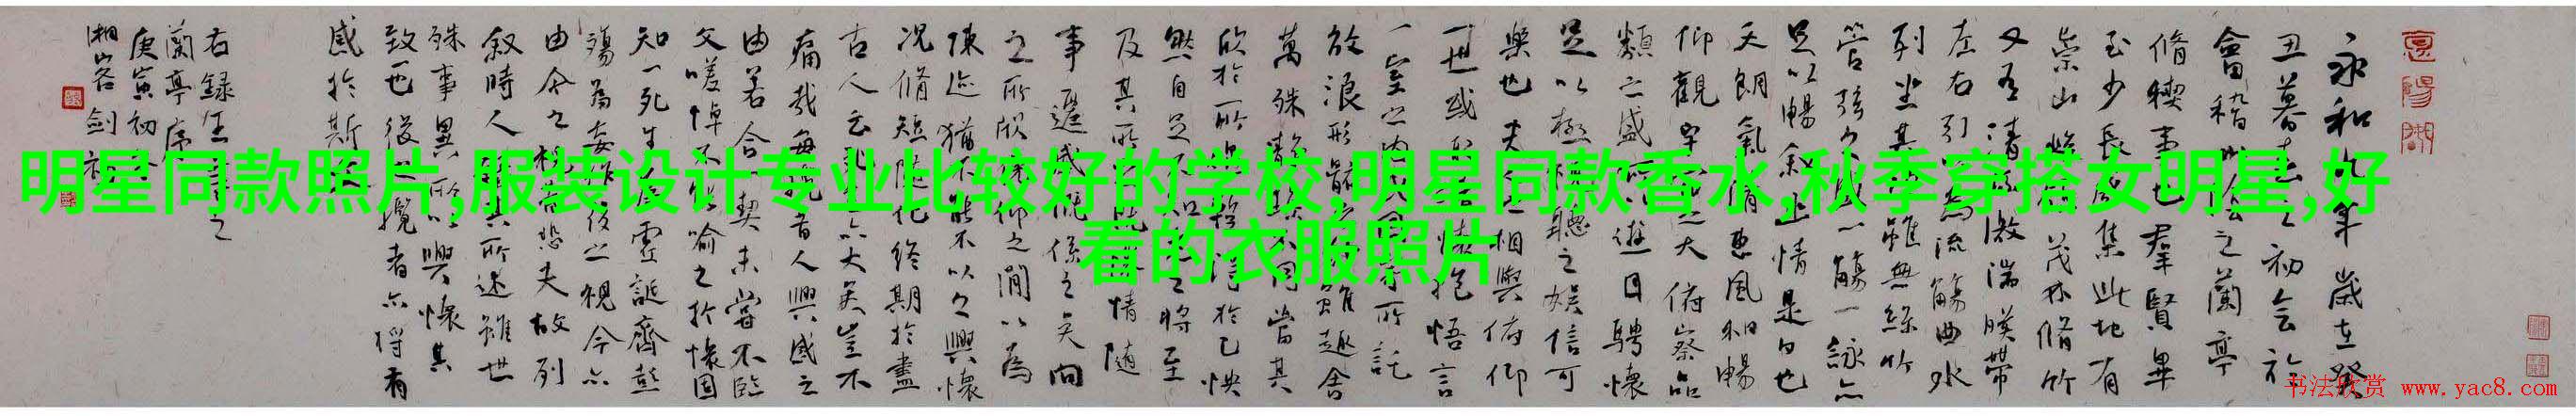 明星同款照片,服装设计专业比较好的学校,明星同款香水,秋季穿搭女明星,好
看的衣服照片
永和九年歲在癸
丑暮春之初会於
會稽山陰之蘭亭
脩稧事也羣賢畢
至少長咸集此地有
崇山峻領茂林脩竹
又有清流激湍暎帶
左右引以為流觴曲水
列坐其次雖無絲竹
管弦之盛一觴一詠亦
足以暢叙幽情是日也
天朗氣清惠風和暢
仰觀宇宙之大俯察品
類之盛所以遊目騁懷
足以極視聽之娛信可
樂也夫人之相與俯仰
一世或取諸懷抱悟言
一室之內或因寄所託
放浪形骸之外雖趣舍
萬殊靜躁不同當其
欣於所遇暫得於己快
然自足不知老之將至
及其所之既惓情隨
事遷感慨係之矣向
之所欣俛仰之間以為
陳迹猶不能不以之興懷
况脩短隨化終期於盡
古人云死生亦大矣豈不
痛哉每攬昔人興感之
由若合一契未嘗不臨
文嗟悼不能喻之於懷固
知一死生為虛誕齊彭
殤為妄作後之視今亦
由今之視昔悲夫故列
叙時人錄其所述雖世
殊事異所以興懷其
致一也後之攬者亦將有
感於斯文
右録王羲之
蘭亭序
庚寅初
湘客剑
书法欣赏 www.yac8.com